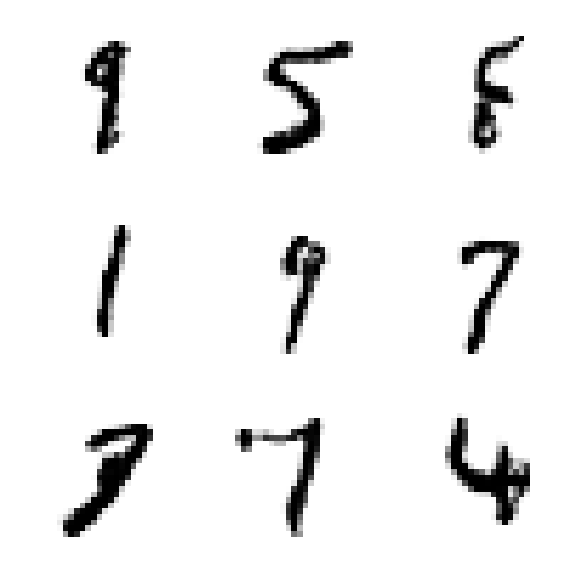 9 5 8
1 9 7
3 7 4